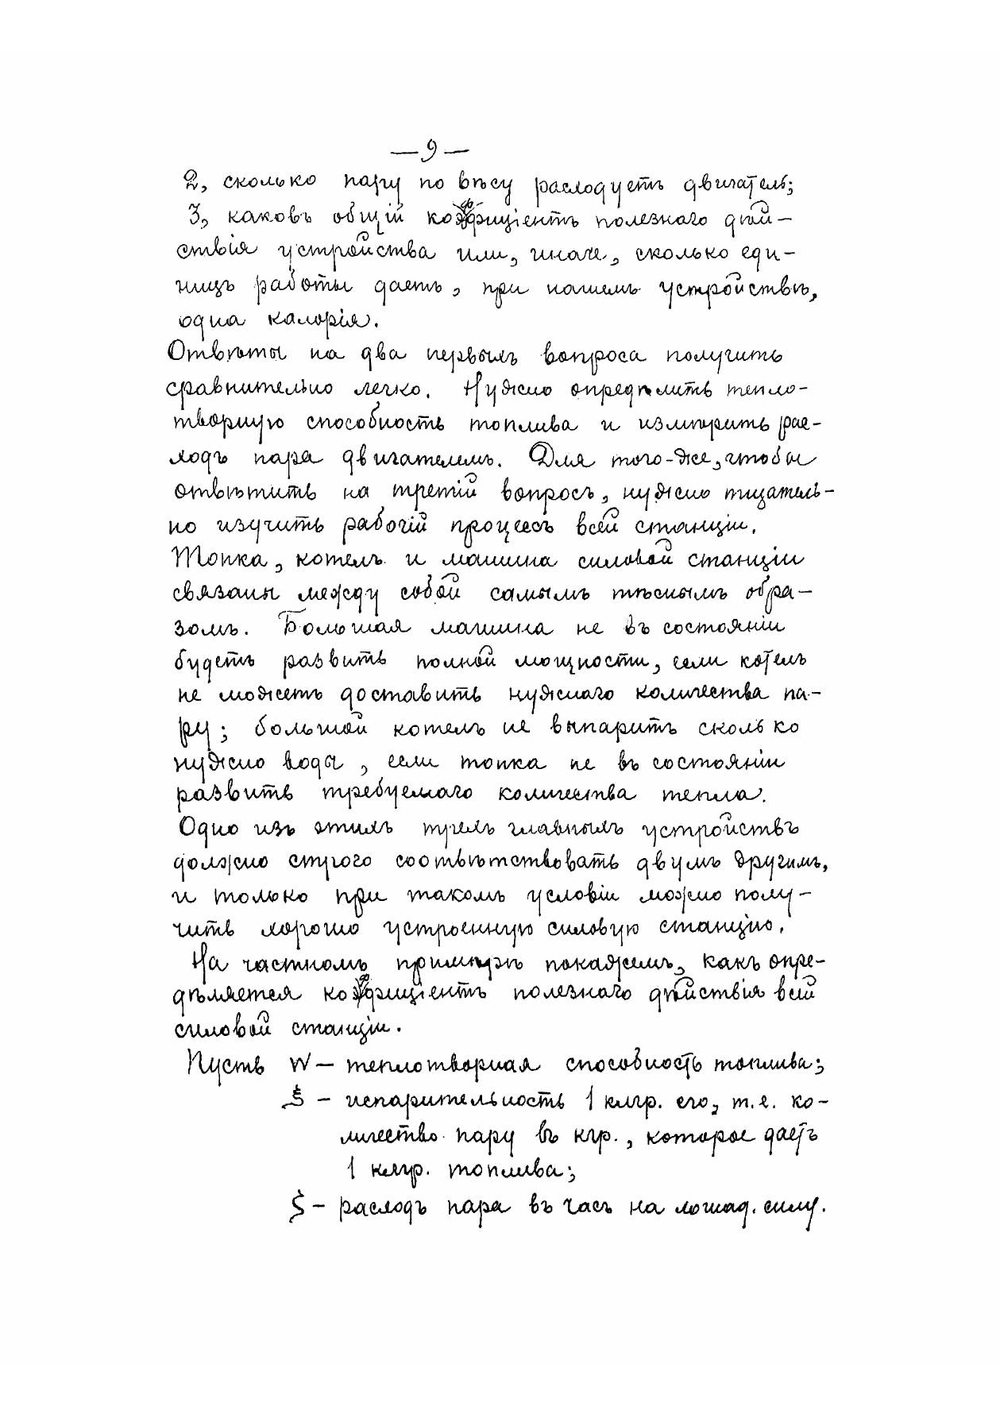 —9—
2, сколько пару по вѣсу расходуетъ двигатель;
3, каковъ общій коэффиціентъ полезнаго дѣй-
ствія устройства или, иначе, сколько еди-
ницъ работы даетъ, при нашемъ устройствѣ,
одна калорія.
Отвѣты на два первыхъ вопроса получить
сравнительно легко. Нужно опредѣлить тепло-
творную способность топлива и измѣрить рас-
ходъ пара двигателемъ. Для того-же, чтобы
отвѣтить на третій вопросъ, нужно тщатель-
но изучить рабочій процессъ всей станціи.
Топка, котелъ и машина силовой станціи
связаны между собой самымъ тѣснымъ обра-
зомъ. Большая машина не въ состояніи
будетъ развить полной мощности, если котелъ
не можетъ доставить нужнаго количества па-
ру; большой котелъ не выпаритъ сколько
нужно воды, если топка не въ состояніи
развить требуемаго количества тепла.
Одно изъ этихъ трехъ главныхъ устройствъ
должно строго соотвѣтствовать двумъ другимъ,
и только при такомъ условіи можно полу-
чить хорошо устроенную силовую станцію.
На частномъ примѣрѣ покажемъ, какъ опре-
дѣляется коэффиціентъ полезнаго дѣйствія всей
силовой станціи.
Пусть W — теплотворная способность топлива;
S – испарительность 1 клгр. его, т.е. ко-
личество пару въ кгр., которое даетъ
1 клгр. топлива;
S – расходъ пара въ часъ на лошад. силу.